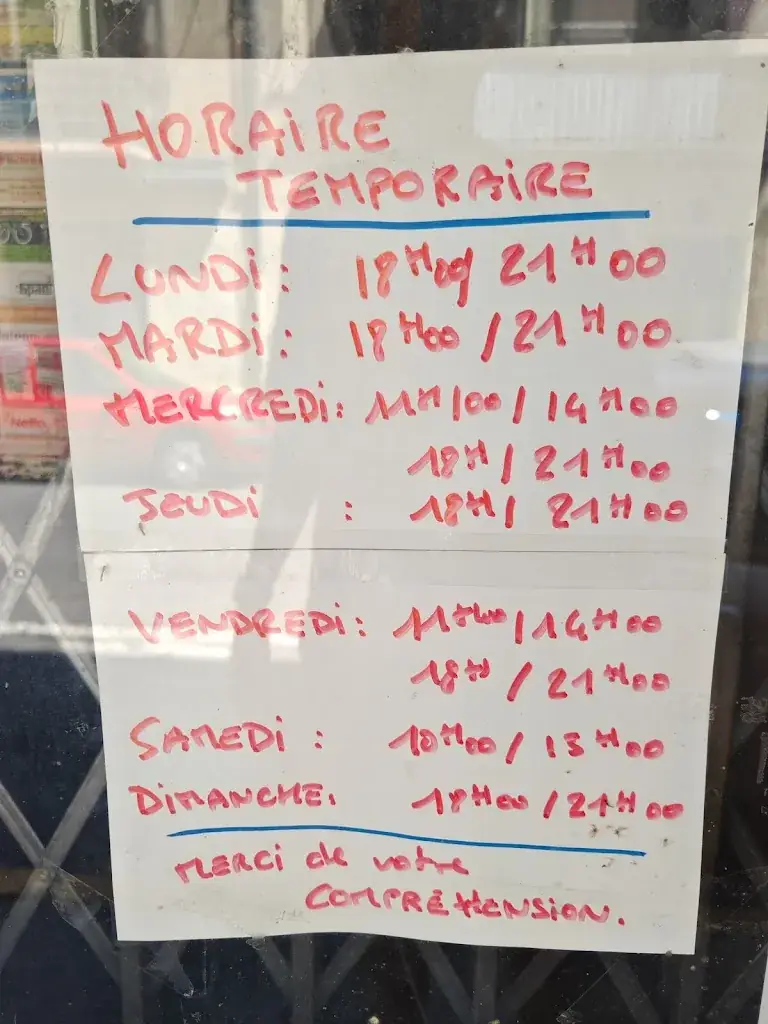 HORAIRE
TEMPORAIRE
LUNDI : 18H00/ 21H00
MARDI : 18H00 / 21H00
MERCREDI : 11H/00 / 14H00
18H / 21H00
JEUDI : 18H / 21H00
VENDREDI : 11H00 / 14H00
18H / 21H00
SAMEDI : 10H00 / 15H00
DIMANCHE. 18H00 / 21H00
MERCI de votre
COMPRÉHENSION.